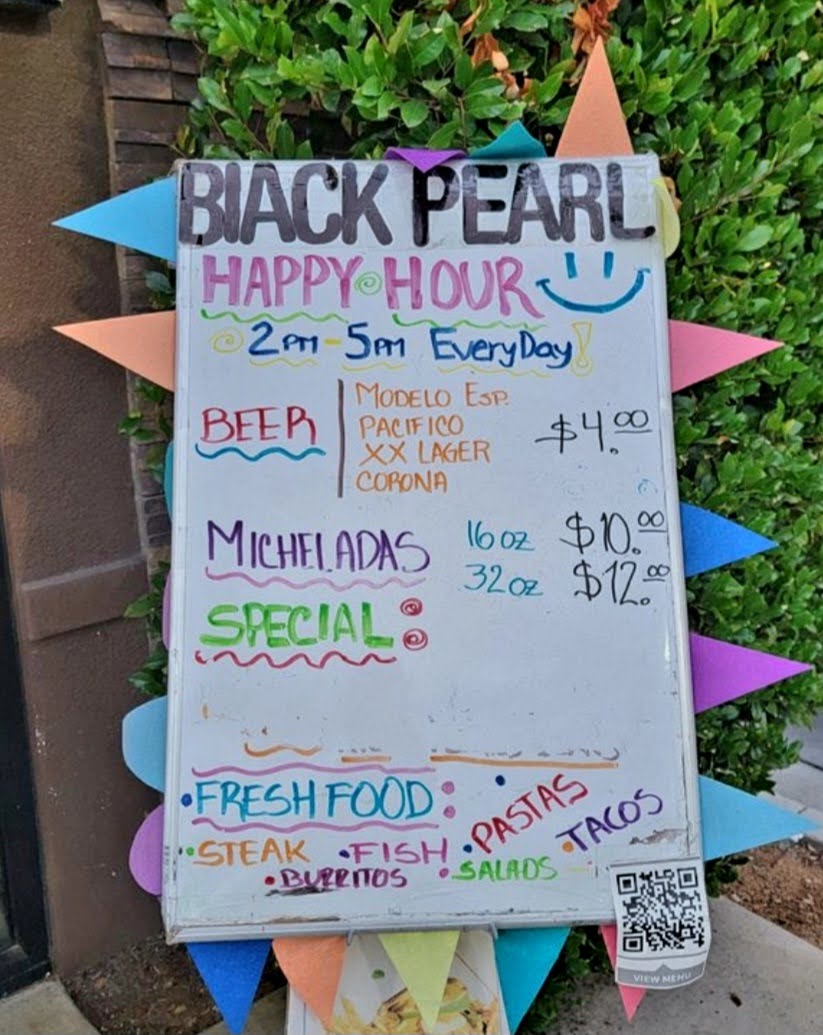 BlACK PEARL
HAPPY HOUR
2PM-5PM EveryDay!
BEER
MODELO ESP.
PACIFICO
XX LAGER
CORONA
$4.00
MICHELADAS
16oz $10.00
32oz $12.00
SPECIAL:
FRESH FOOD:
• STEAK • FISH • PASTAS • TACOS
• BURRITOS • SALADS
VIEW MENU